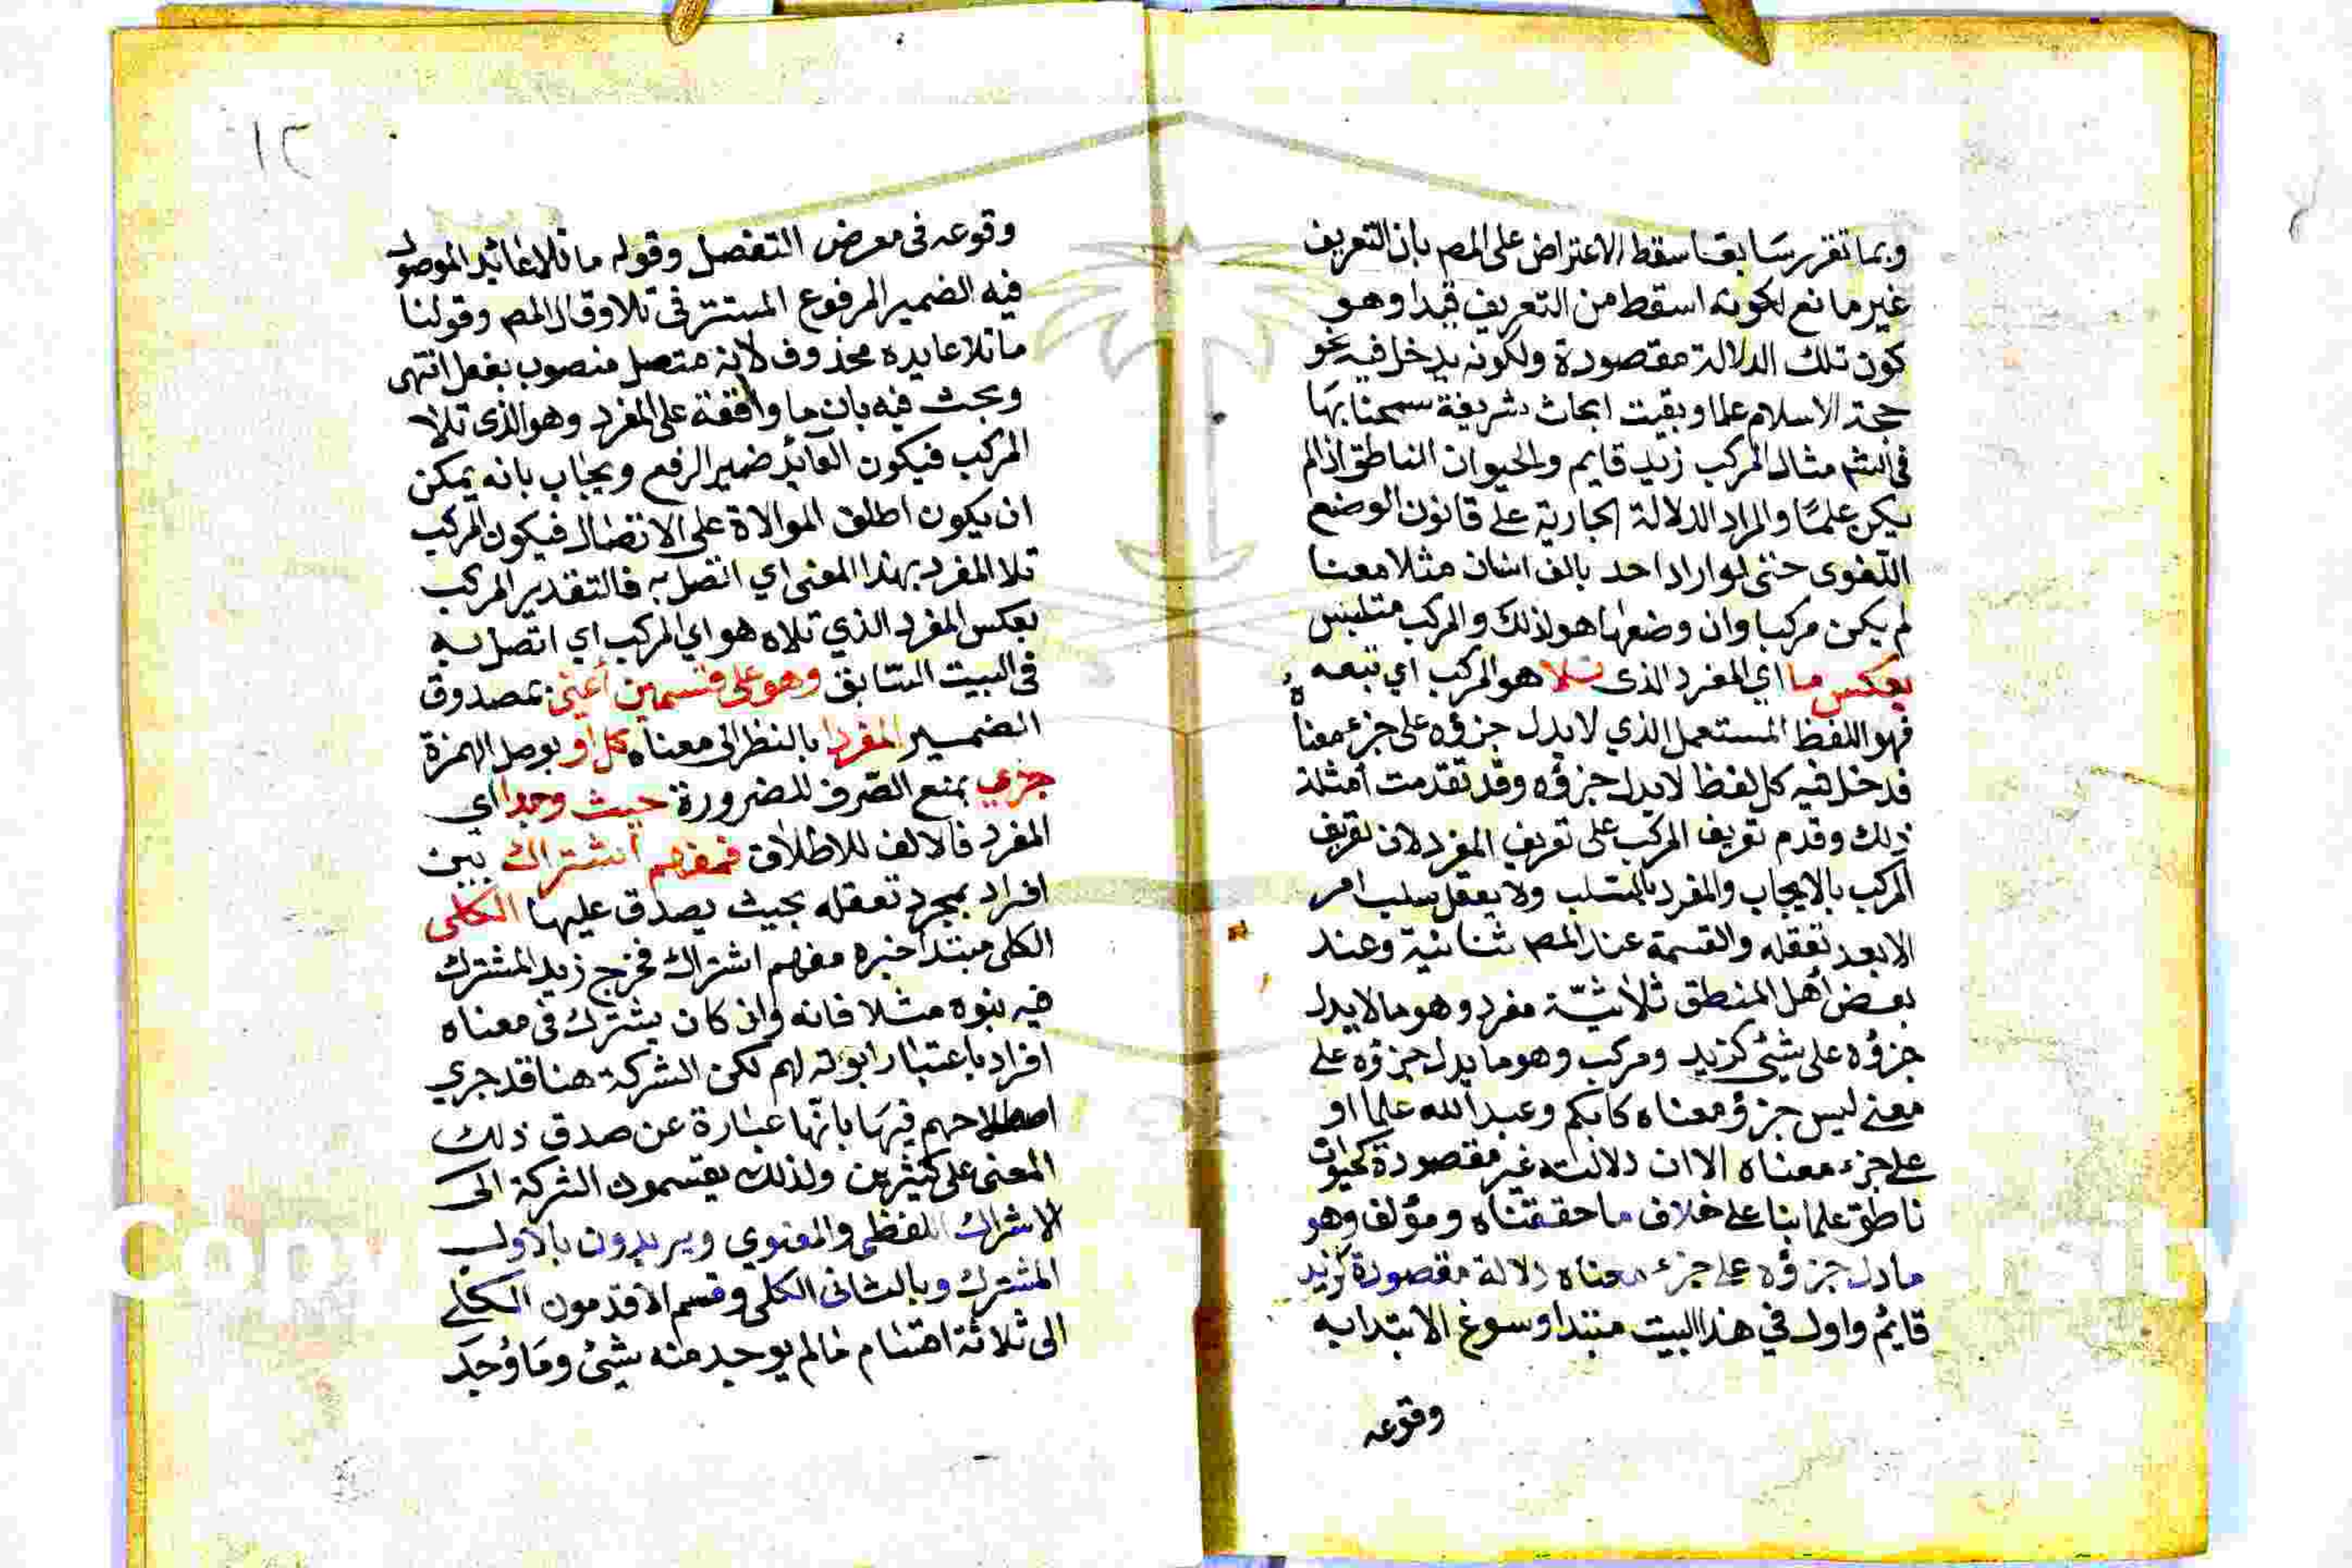 وبما تقرر سابقا سقط الاعتراض على المص بان التعريف
غير مانع لكونه اسقط من التعريف قيدا وهو
كون تلك الدلالة مقصودة ولكونه يدخل فيه نحو
حجة الاسلام علما وبقيت ابحاث شريفة سمحنا بها
في الشم مثال المركب زيد قايم والحيوان الناطق اذا لم
يكن علمًا والمراد الدلالة الجارية على قانون الوضع
اللغوى حتى لو اراد احد بالف انسان مثلا معنا
لم يكن مركبا وان وضعها هو لذلك والمركب متلبس
بعكس ما اي المفرد الذى تلا هو المركب اي تبعه
فهو اللفظ المستعمل الذي لا يدل جزؤه على جزء معناه
فدخل فيه كل لفظ لا يدل جزؤه وقد تقدمت أمثلة
ذلك وقدم تعريف المركب على تعريف المفرد لان تعريف
المركب بالايجاب والمفرد بالسلب ولا يعقل سلب امر
الا بعد تعقله والقسمة عند المص ثنائية وعند
بعض أهل المنطق ثلاثيّة مفرد وهو ما لا يدل
جزؤه على شئ كزيد ومركب وهو ما يدل جزؤه على
معنى ليس جزؤ معناه كابكم وعبد الله علما او
على جزء معناه الا ان دلالته غير مقصودة كحيوان
ناطق علما بنا على خلاف ما حققناه ومؤلف وهو
ما دل جزؤه على جزء معناه دلالة مقصودة كزيد
قايم واول في هذا البيت مبتدا وسوغ الابتدا به
وقوعه
١٢
وقوعه فى معرض التفصل وقوله ما تلا عائد الموصول
فيه الضمير المرفوع المستتر فى تلا وقال المص وقولنا
ما تلا عايده محذوف لانه متصل منصوب بفعل انتهى
وبحث فيه بان ما واقعة على المفرد وهو الذى تلا
المركب فيكون العائد ضمير الرفع ويجاب بانه يمكن
ان يكون اطلق الموالاة على الاتصال فيكون المركب
تلا المفرد بهذا المعنى اي اتصل به فالتقدير المركب
بعكس المفرد الذي تلاه هو اي المركب اي اتصل به
فى البيت السّابق وهو على قسمين أعني بمصدوق
الضمير المفردا بالنظر الى معناه كل او بوصل الهمزة
جزي بمنع الصّرف للضرورة حيث وجدا اي
المفرد فالالف للاطلاق فمفهم اشتراك بين
افراد بمجرد تعقله بحيث يصدق عليها الكلى
الكلى مبتدا خبره مفهم اشتراك فخرج زيد المشترك
فيه بنوه مثلا فانه وان كان يشترك فى معناه
افراد باعتبار ابوته لهم لكن الشركة هنا قد جري
اصطلاحهم فيها بانّها عبارة عن صدق ذلك
المعنى على كثيرين ولذلك يقسمون الشركة الى
الاشراك اللفظى والمعنوي ويريدون بالاول
المشترك وبالثانى الكلى وقسم الاقدمون الكلى
الى ثلاثة اقسام ما لم يوجد منه شئ وما وُجد